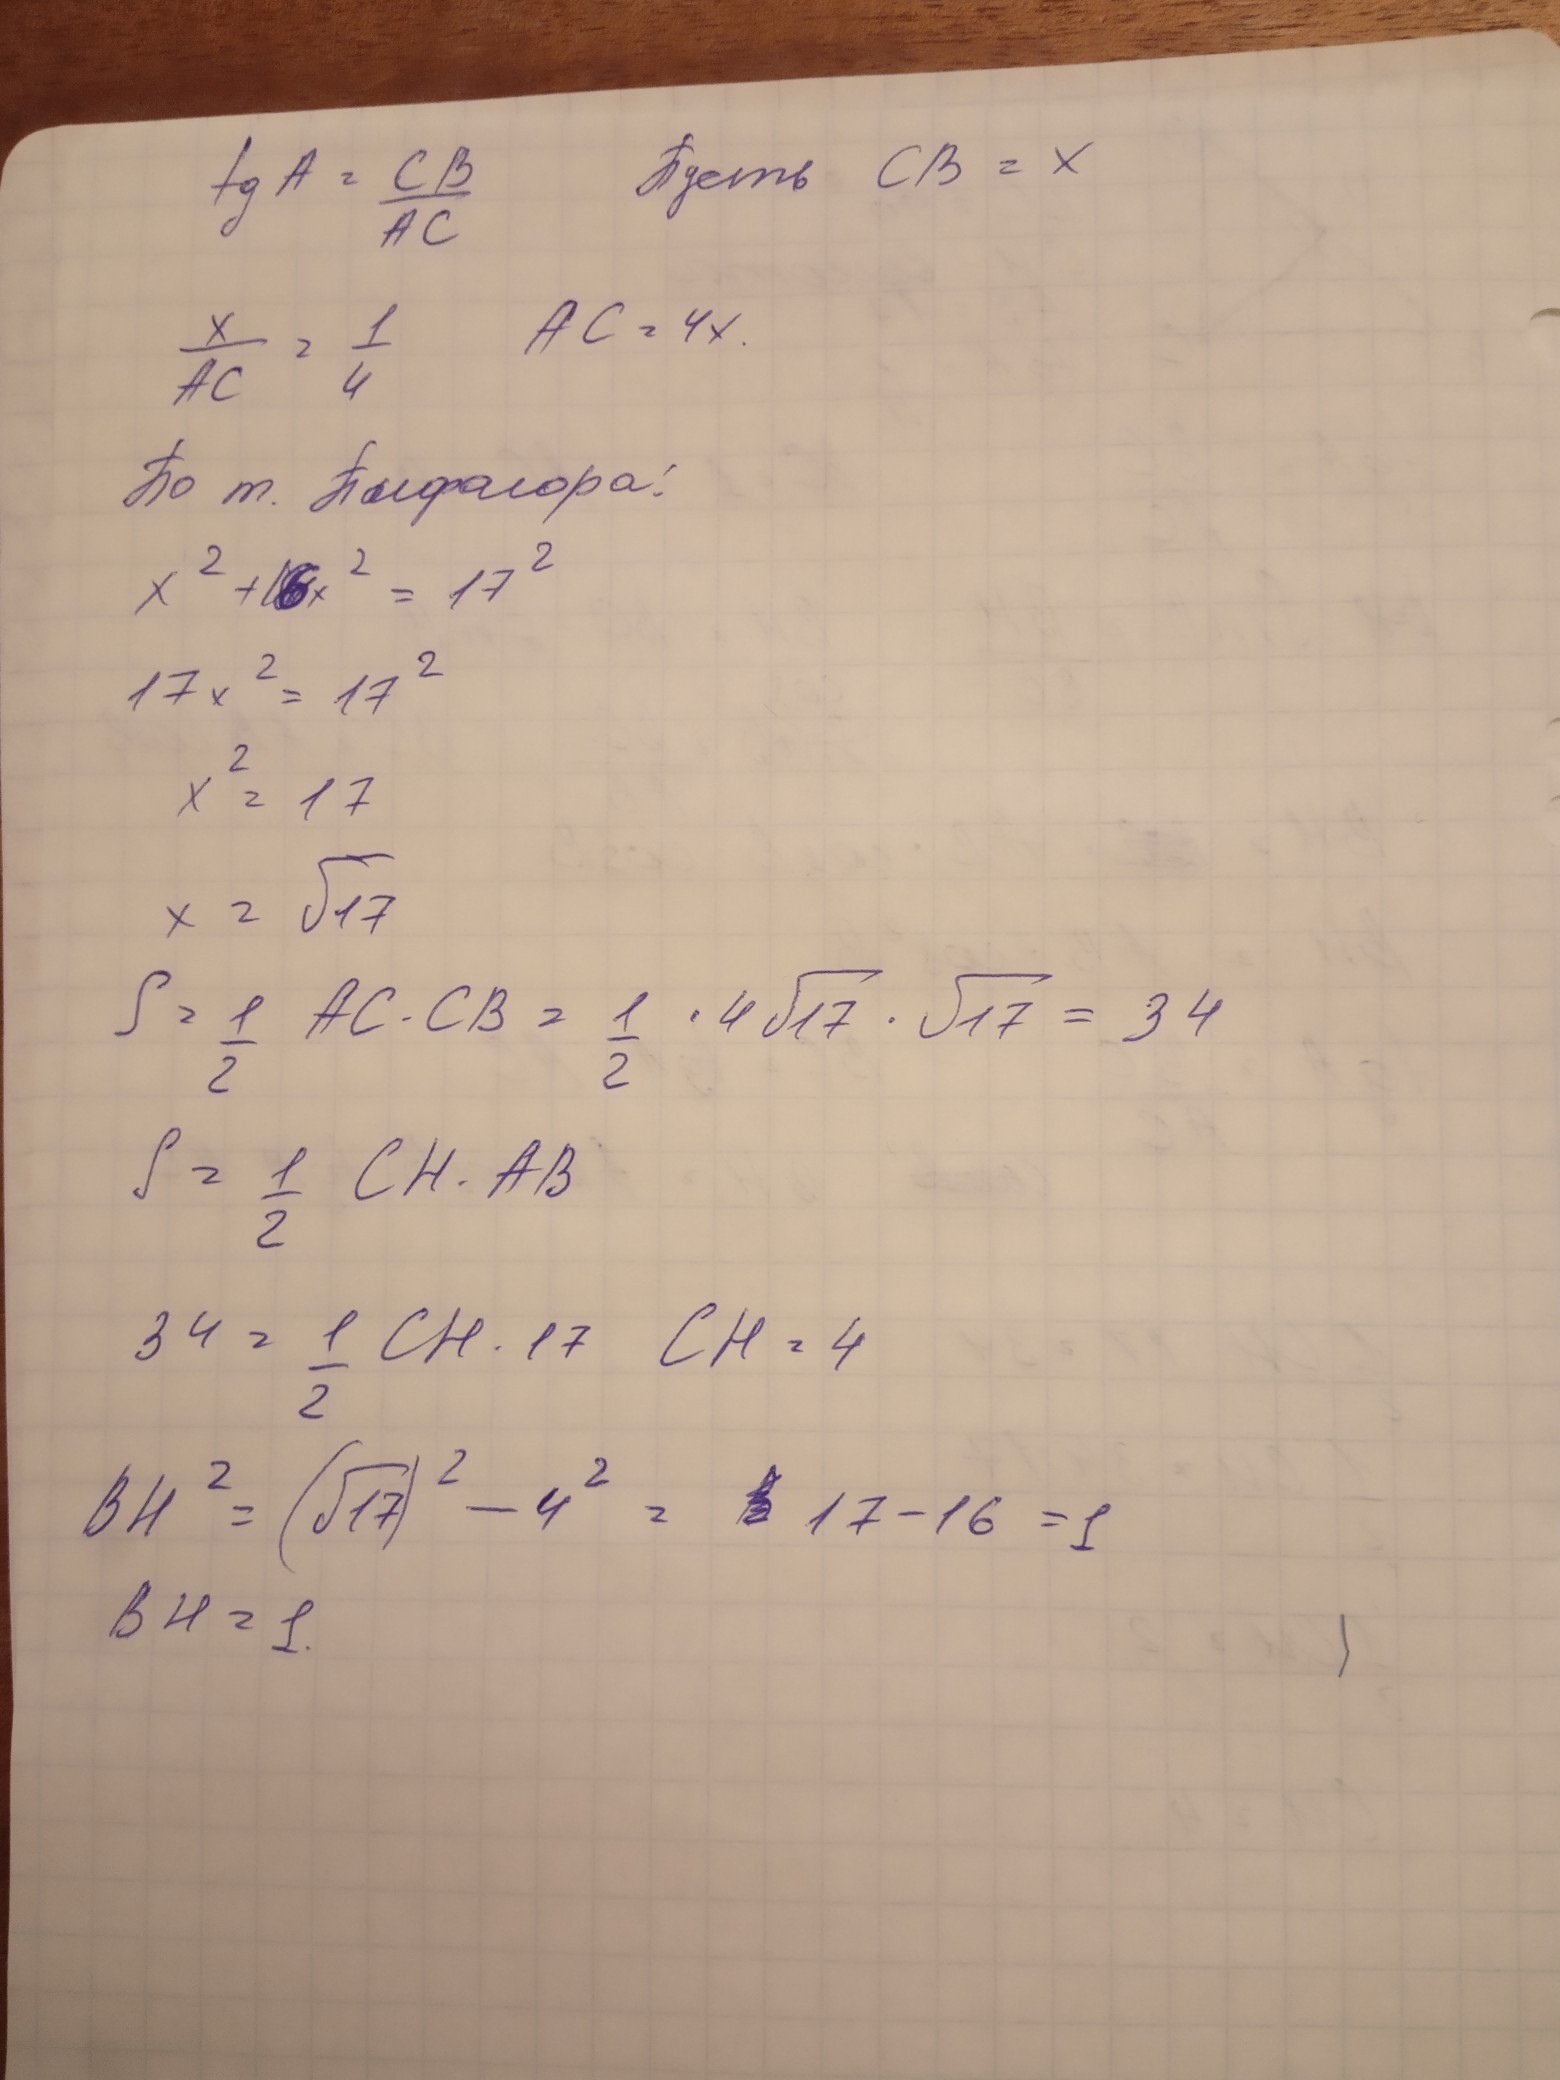 tg A = CB/AC Пусть CB = x
x/AC = 1/4 AC = 4x.
По т. Пифагора:
x² + 16x² = 17²
17x² = 17²
x² = 17
x = √17
S = 1/2 AC · CB = 1/2 · 4√17 · √17 = 34
S = 1/2 CH · AB
34 = 1/2 CH · 17 CH = 4
BH² = (√17)² – 4² = 17 – 16 = 1
BH = 1.